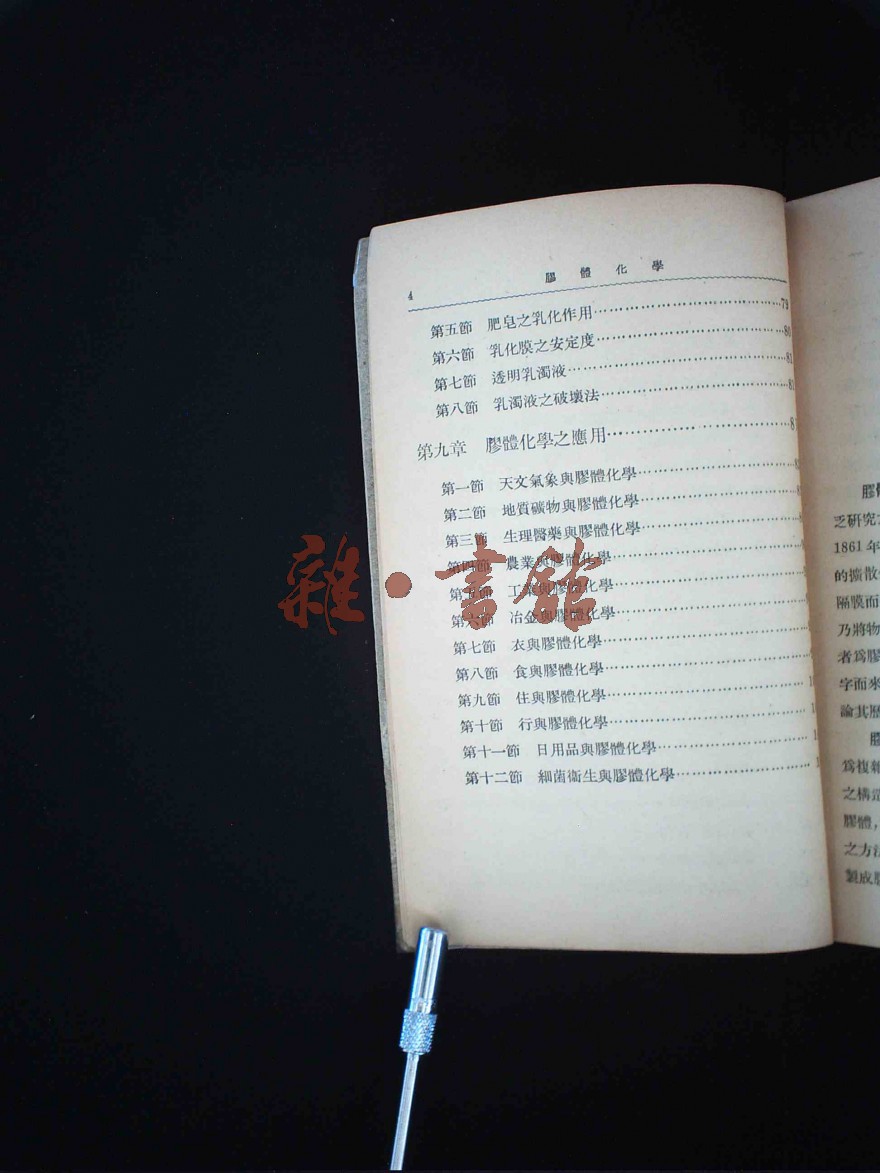 4
膠體化學
第五節 肥皂之乳化作用……79
第六節 乳化膜之安定度……80
第七節 透明乳濁液……81
第八節 乳濁液之破壞法……81
第九章 膠體化學之應用……
第一節 天文氣象與膠體化學……
第二節 地質礦物與膠體化學……
第三節 生理醫藥與膠體化學……
第四節 農業與膠體化學……
第五節 工業與膠體化學……
第六節 冶金與膠體化學……
第七節 衣與膠體化學……
第八節 食與膠體化學……
第九節 住與膠體化學……
第十節 行與膠體化學……
第十一節 日用品與膠體化學……
第十二節 細菌衞生與膠體化學……
雜·書館
乏研究
1861年
的擴散
隔膜而
乃將物
者爲膠
字而來
論其歷
爲複雜
之構造
膠體，
之方法
製成膠